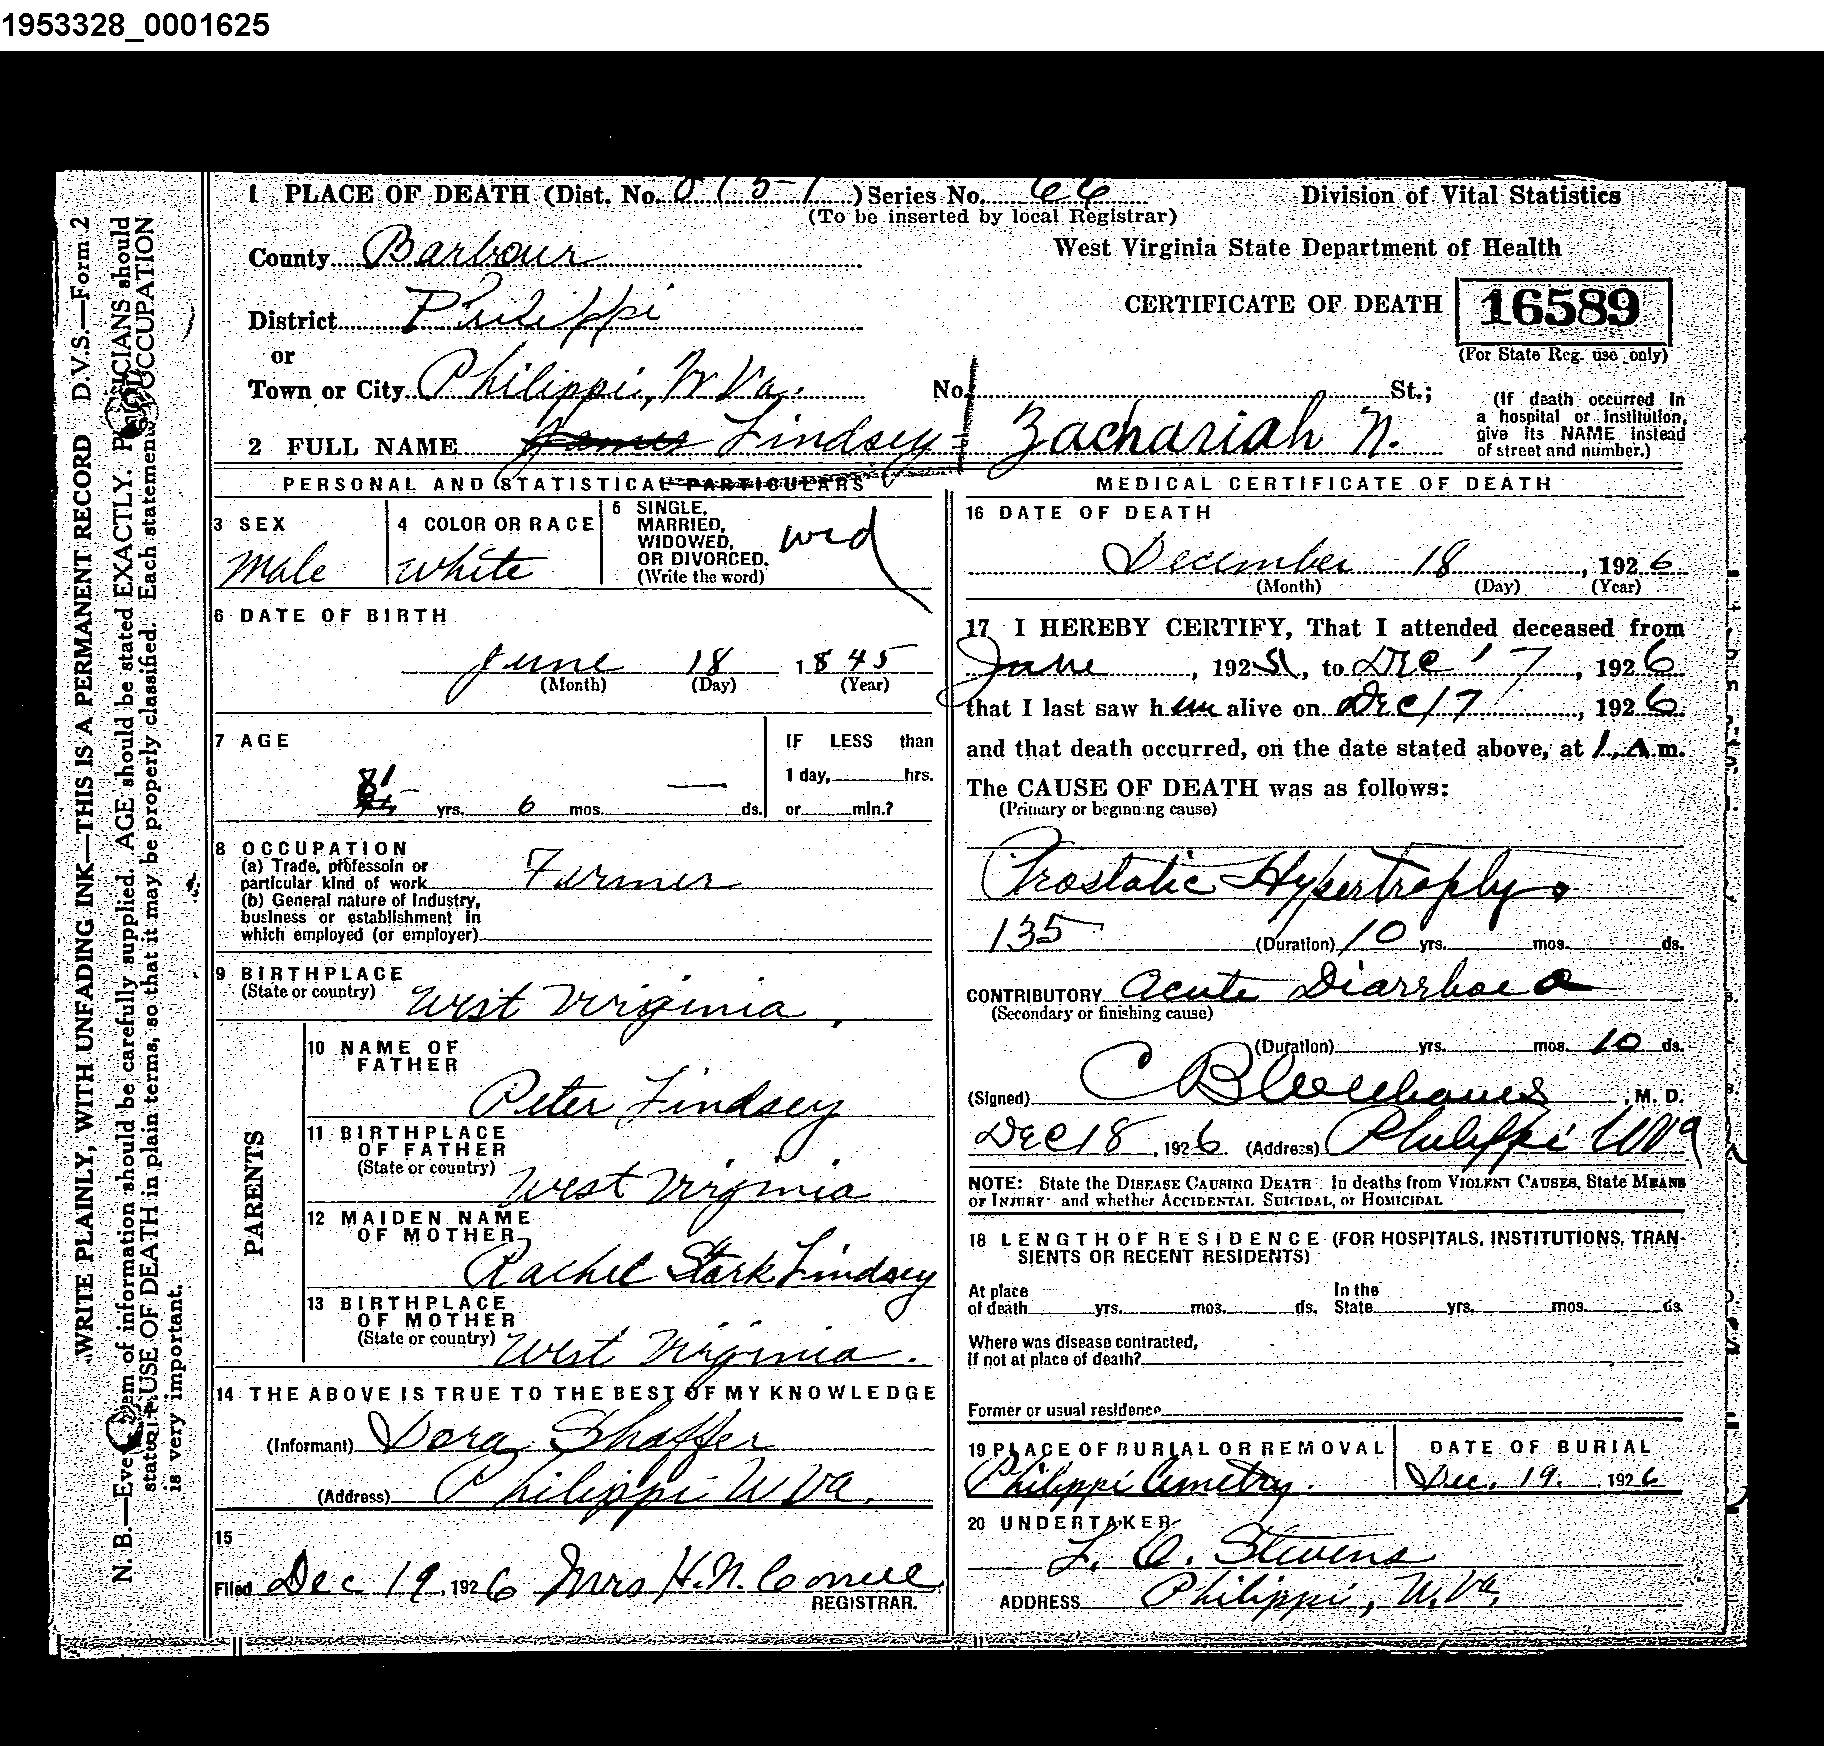 1953328_0001625
1 PLACE OF DEATH (Dist. No. 0151) Series No. 66
(To be inserted by local Registrar)
Division of Vital Statistics
County Barbour
West Virginia State Department of Health
District Philippi
CERTIFICATE OF DEATH 16589
(For State Reg. use only)
or
Town or City Philippi, W Va. No. St.;
(If death occurred in
a hospital or institution,
give its NAME instead
of street and number.)
2 FULL NAME James Lindsey Zachariah N.
PERSONAL AND STATISTICAL PARTICULARS
3 SEX
Male
4 COLOR OR RACE
White
5 SINGLE,
MARRIED,
WIDOWED,
OR DIVORCED.
(Write the word)
wid
6 DATE OF BIRTH
June 18 1845
(Month) (Day) (Year)
7 AGE
81 yrs. 6 mos. — ds.
IF LESS than
1 day, hrs.
or min.?
8 OCCUPATION
(a) Trade, professoin or
particular kind of work Farmer
(b) General nature of Industry,
business or establishment in
which employed (or employer)
9 BIRTHPLACE
(State or country) West Virginia
PARENTS
10 NAME OF
FATHER
Peter Lindsey
11 BIRTHPLACE
OF FATHER
(State or country) West Virginia
12 MAIDEN NAME
OF MOTHER
Rachel Stark Lindsey
13 BIRTHPLACE
OF MOTHER
(State or country) West Virginia.
14 THE ABOVE IS TRUE TO THE BEST OF MY KNOWLEDGE
(Informant) Dora Shaffer
(Address) Philippi W Va.
15
Filed Dec 19, 1926 Mrs H. N.
REGISTRAR.
MEDICAL CERTIFICATE OF DEATH
16 DATE OF DEATH
December 18, 1926
(Month) (Day) (Year)
17 I HEREBY CERTIFY, That I attended deceased from
, 192 , to Dec 17, 1926
that I last saw him alive on Dec 17, 1926
and that death occurred, on the date stated above, at 1, A.m.
The CAUSE OF DEATH was as follows:
(Primary or beginning cause)
Prostatic Hypertrophy.
135 (Duration) 10 yrs. mos. ds.
CONTRIBUTORY Acute Diarrhoea
(Secondary or finishing cause)
(Duration) yrs. mos. 10 ds.
(Signed) , M. D.
Dec 18, 1926. (Address) Philippi W Va
NOTE: State the DISEASE CAUSING DEATH. In deaths from VIOLENT CAUSES, State MEANS
OF INJURY and whether ACCIDENTAL, SUICIDAL, or HOMICIDAL
18 LENGTH OF RESIDENCE (FOR HOSPITALS, INSTITUTIONS, TRAN-
SIENTS OR RECENT RESIDENTS)
At place
of death yrs. mos. ds.
In the
State yrs. mos. ds.
Where was disease contracted,
If not at place of death?
Former or usual residence
19 PLACE OF BURIAL OR REMOVAL
Philippi Cemetry.
DATE OF BURIAL
Dec. 19. 1926
20 UNDERTAKER
Stevens
ADDRESS Philippi, W. Va.
D.V.S.—Form 2
WRITE PLAINLY, WITH UNFADING INK—THIS IS A PERMANENT RECORD
N. B.—Every item of information should be carefully supplied. AGE should be stated EXACTLY. PHYSICIANS should
state CAUSE OF DEATH in plain terms, so that it may be properly classified. Each statement OCCUPATION
is very important.